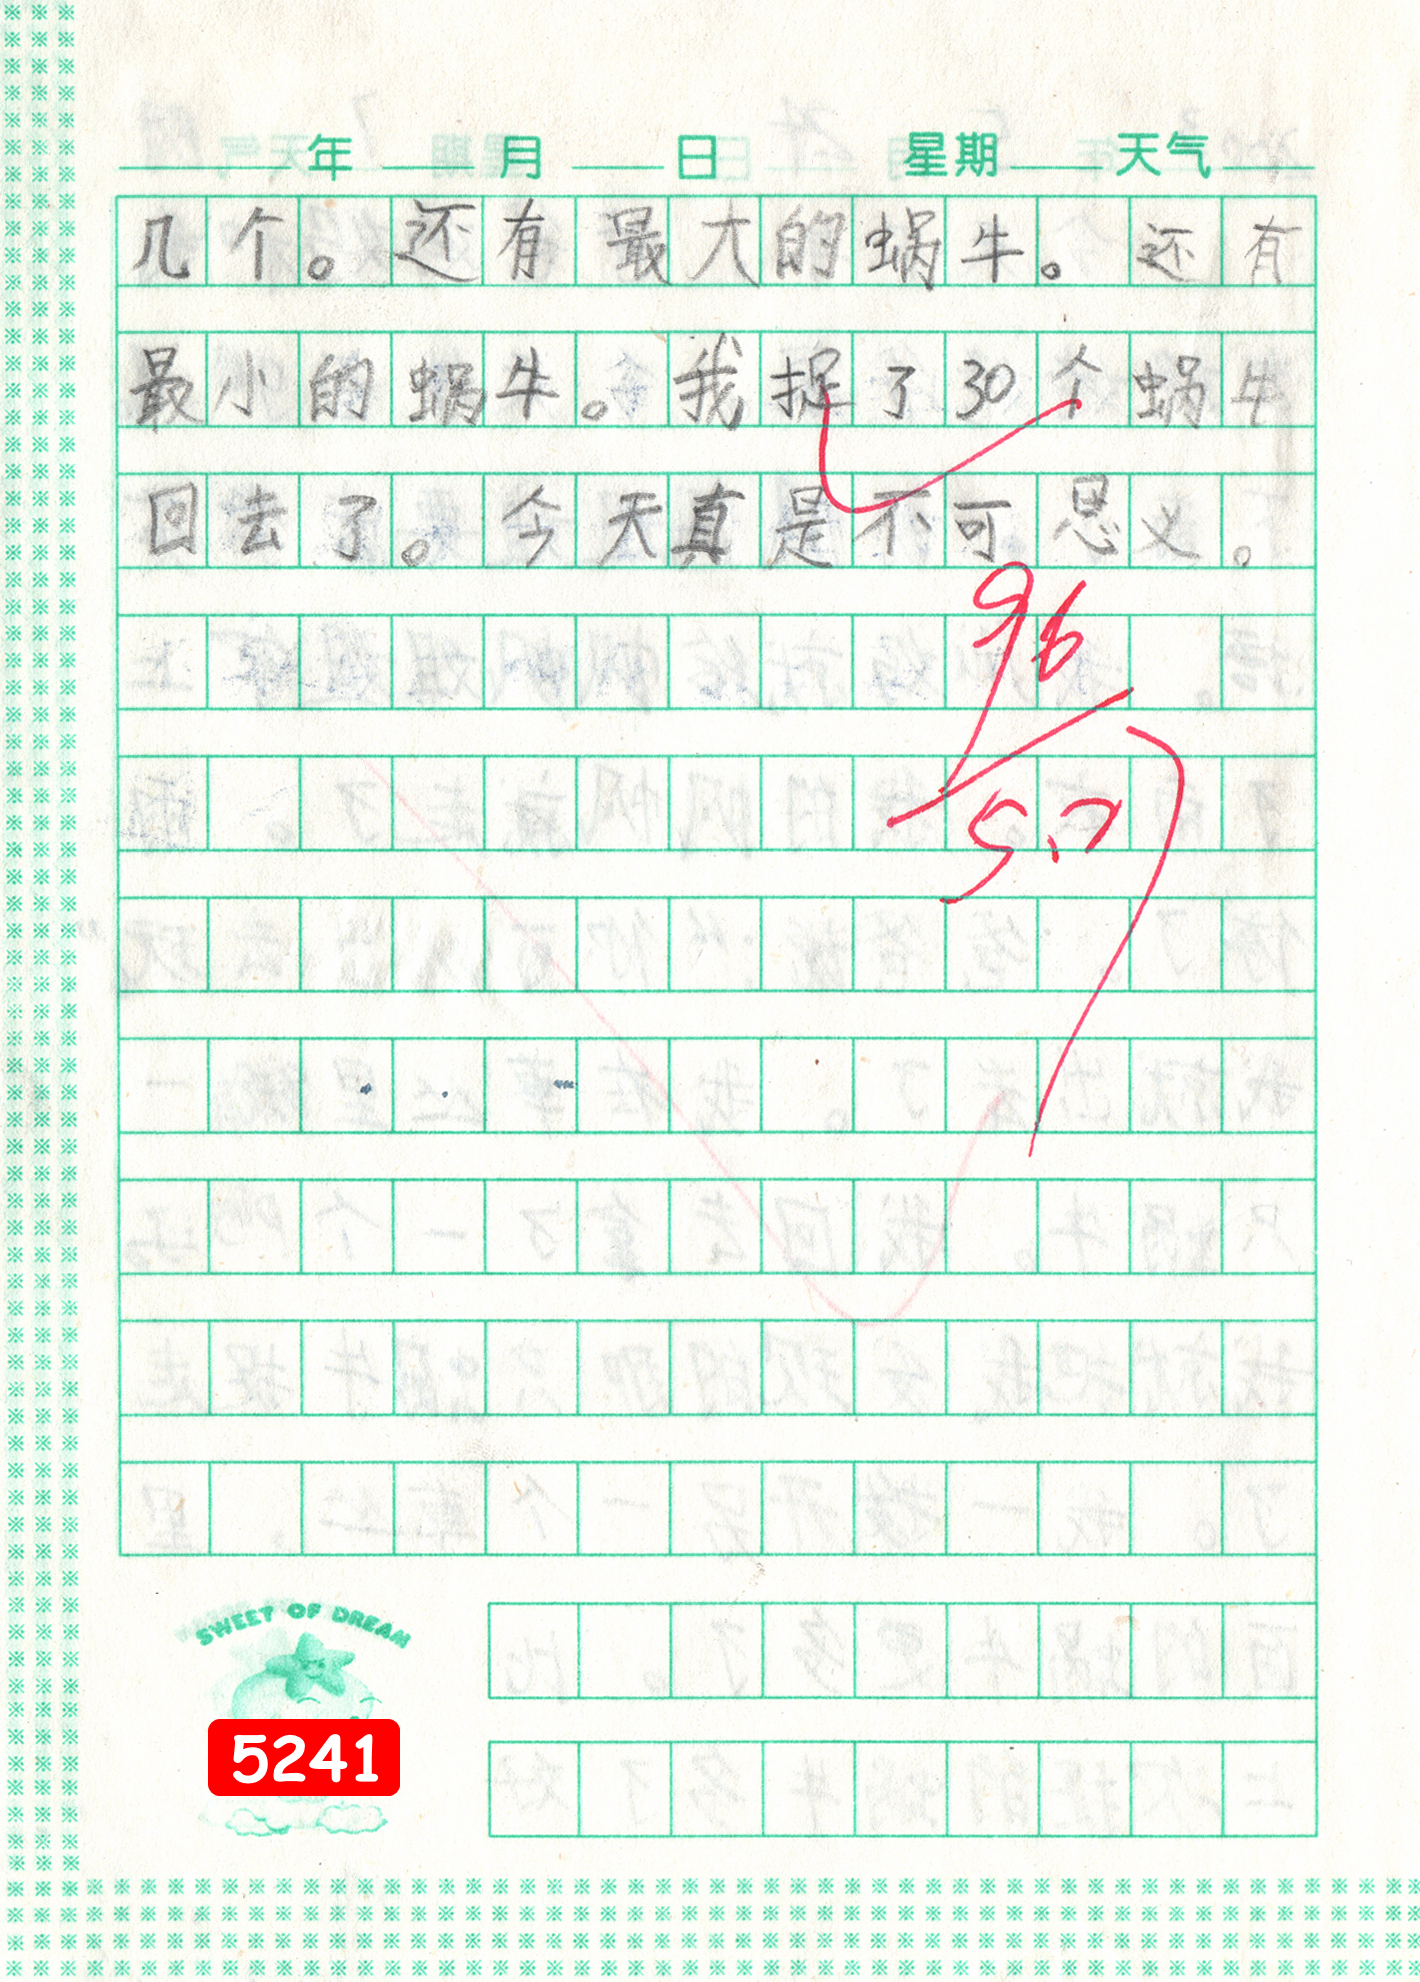 年 月 日 星期 天气
几个。还有最大的蜗牛。还有
最小的蜗牛。我捉了30个蜗牛
回去了。今天真是不可思义。
96
5.7
SWEET OF DREAM
5241